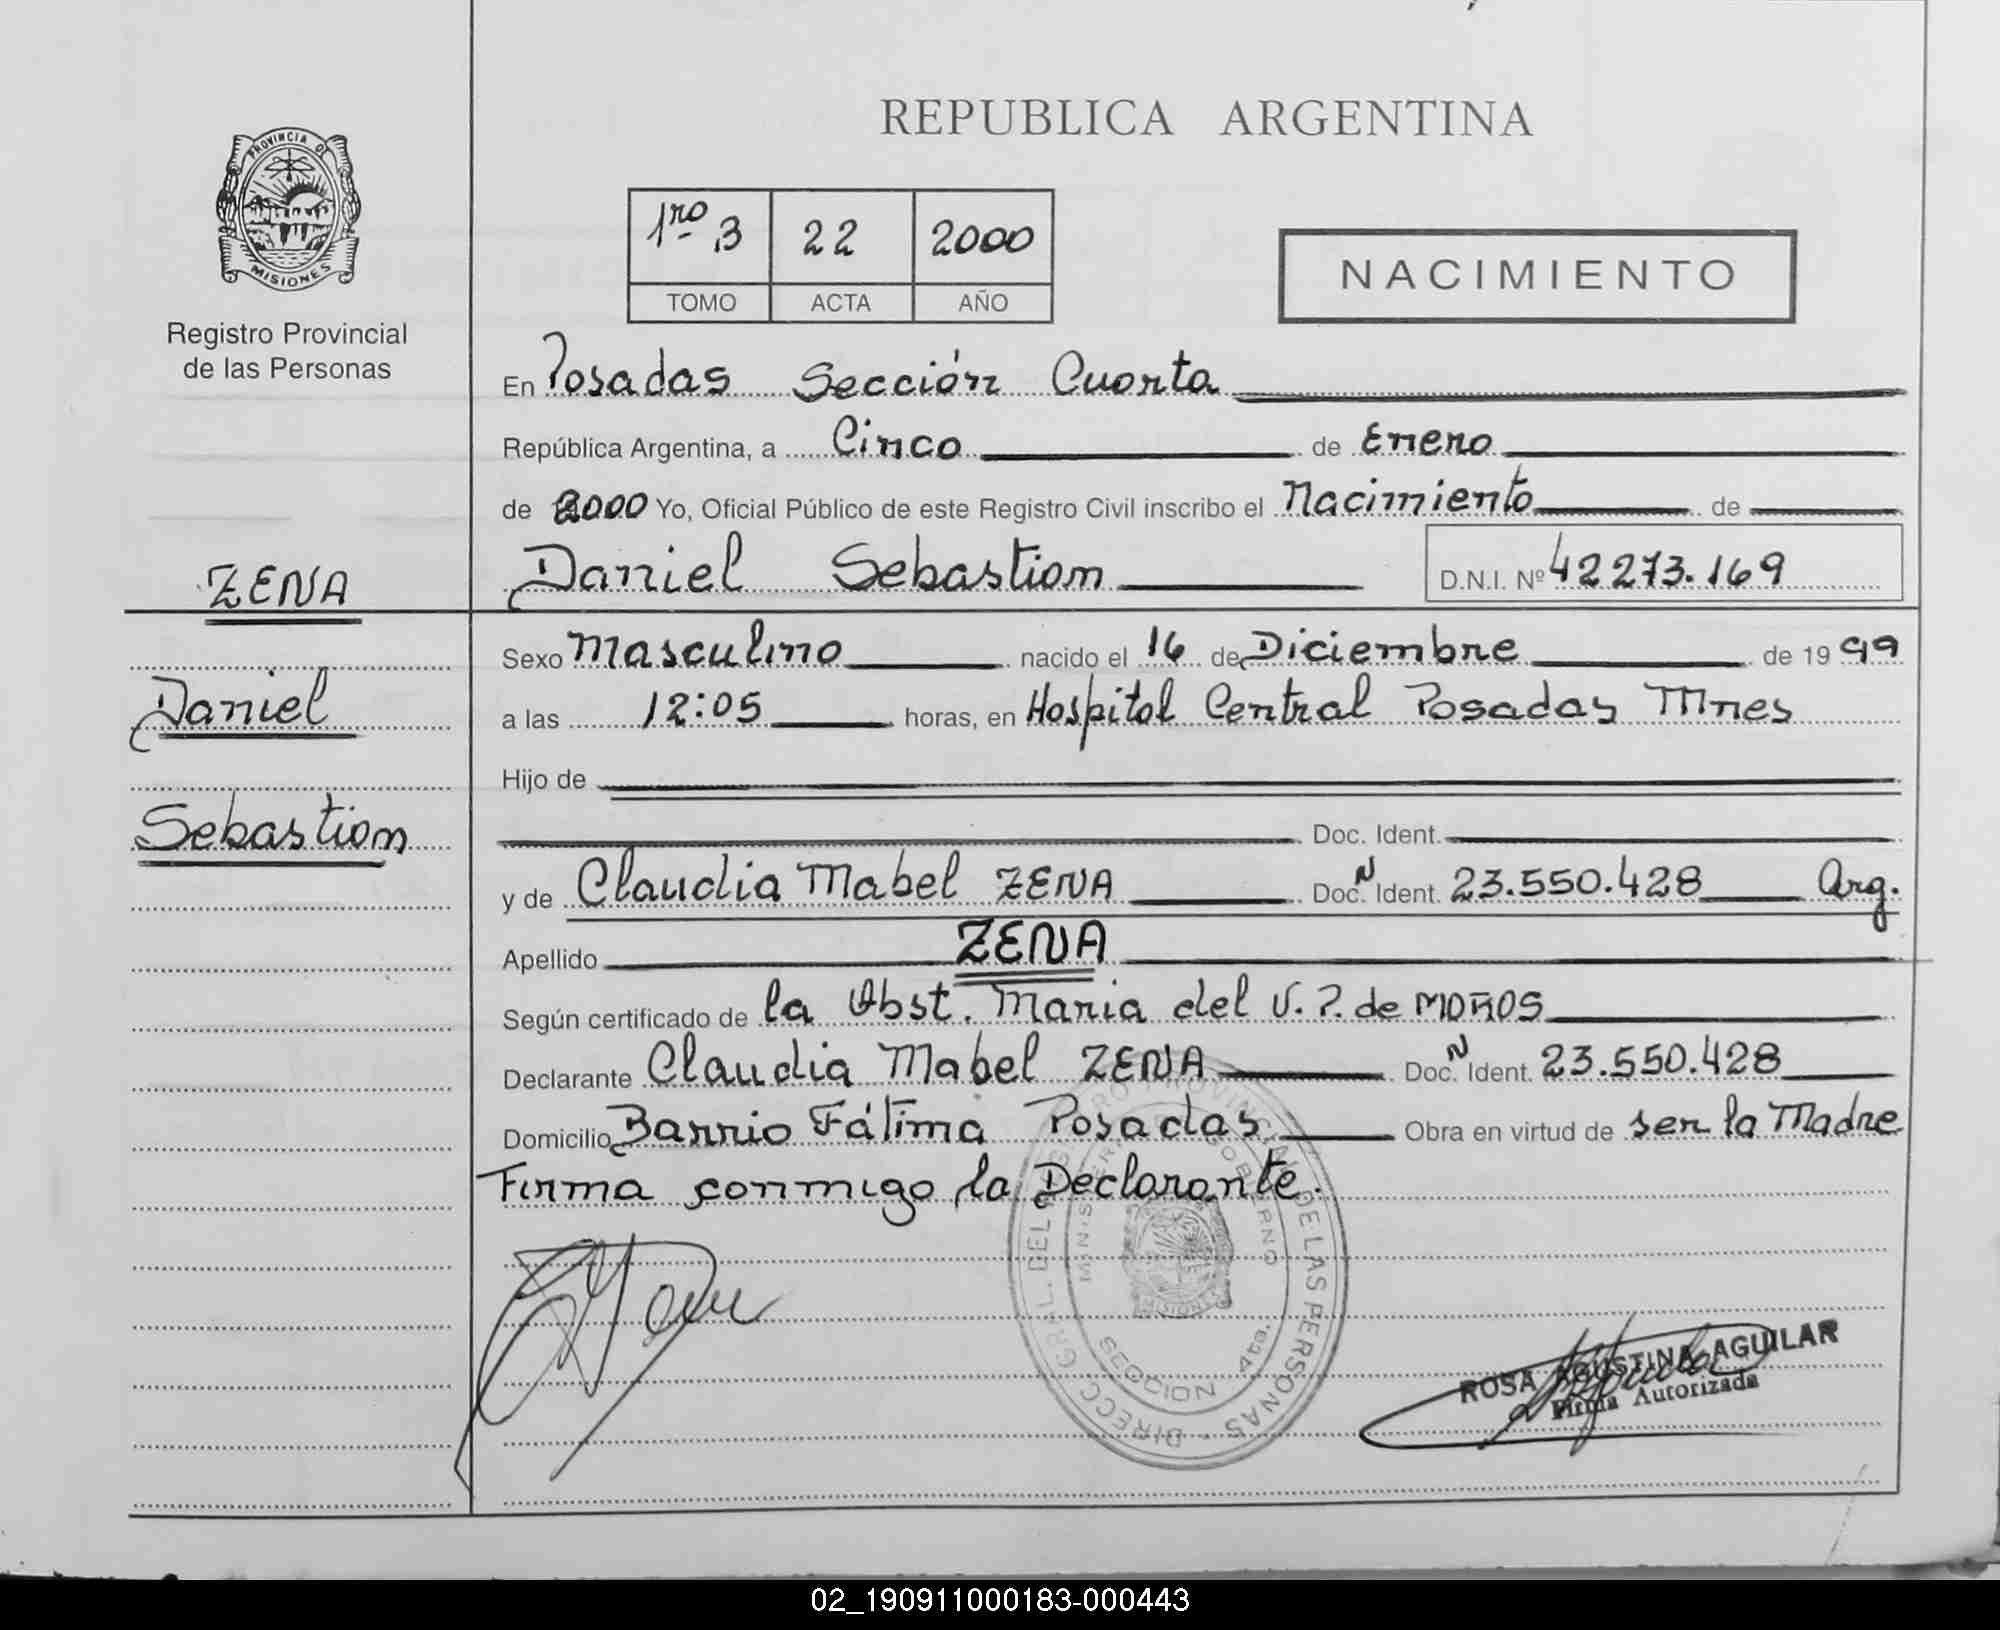 REPUBLICA ARGENTINA
PROVINCIA DE
MISIONES
Registro Provincial
de las Personas
1ro 3 22 2000
TOMO ACTA AÑO
NACIMIENTO
En Posadas Sección Cuarta
República Argentina, a Cinco de Enero
de 2000 Yo, Oficial Público de este Registro Civil inscribo el Nacimiento de
ZENA
Daniel Sebastian D.N.I. Nº 42273.169
Sexo Masculino nacido el 16 de Diciembre de 1999
Daniel
a las 12:05 horas, en Hospital Central Posadas Mnes
Hijo de
Sebastian
Doc. Ident.
y de Claudia Mabel ZENA Doc. N Ident. 23.550.428 Arg.
Apellido ZENA
Según certificado de la Obst. Maria del V. P. de MOÑOS
Declarante Claudia Mabel ZENA Doc. N Ident. 23.550.428
Domicilio Barrio Fátima Posadas Obra en virtud de ser la Madre
Firma conmigo la Declarante.
DIRECC. GRAL. DEL REGISTRO PROVINCIAL DE LAS PERSONAS
MINISTERIO GOBIERNO
MISIONES
SECCION 4ta.
ROSA AGUSTINA AGUILAR
Firma Autorizada
02_190911000183-000443